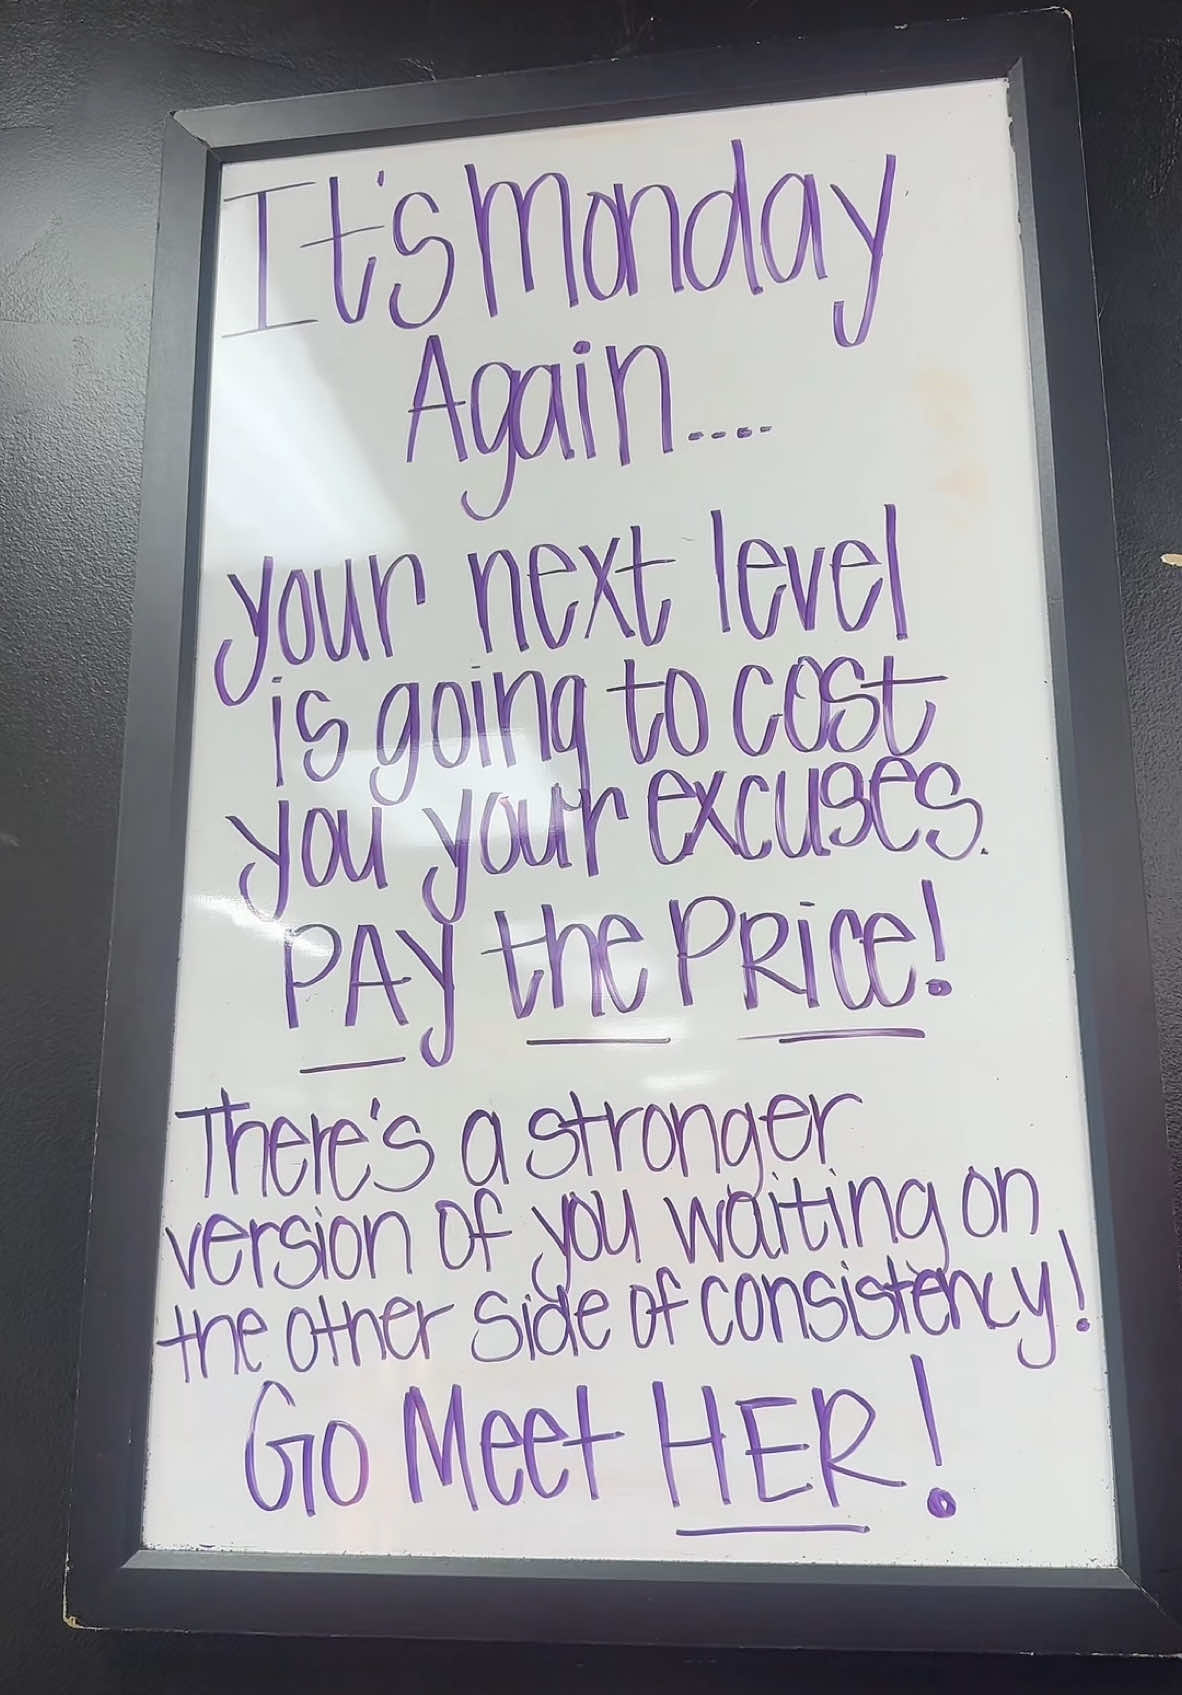 It's Monday
Again....
your next level
is going to cost
you your excuses.
PAY the PRice!
There's a stronger
version of you waiting on
the other side of consistency!
Go Meet HER!